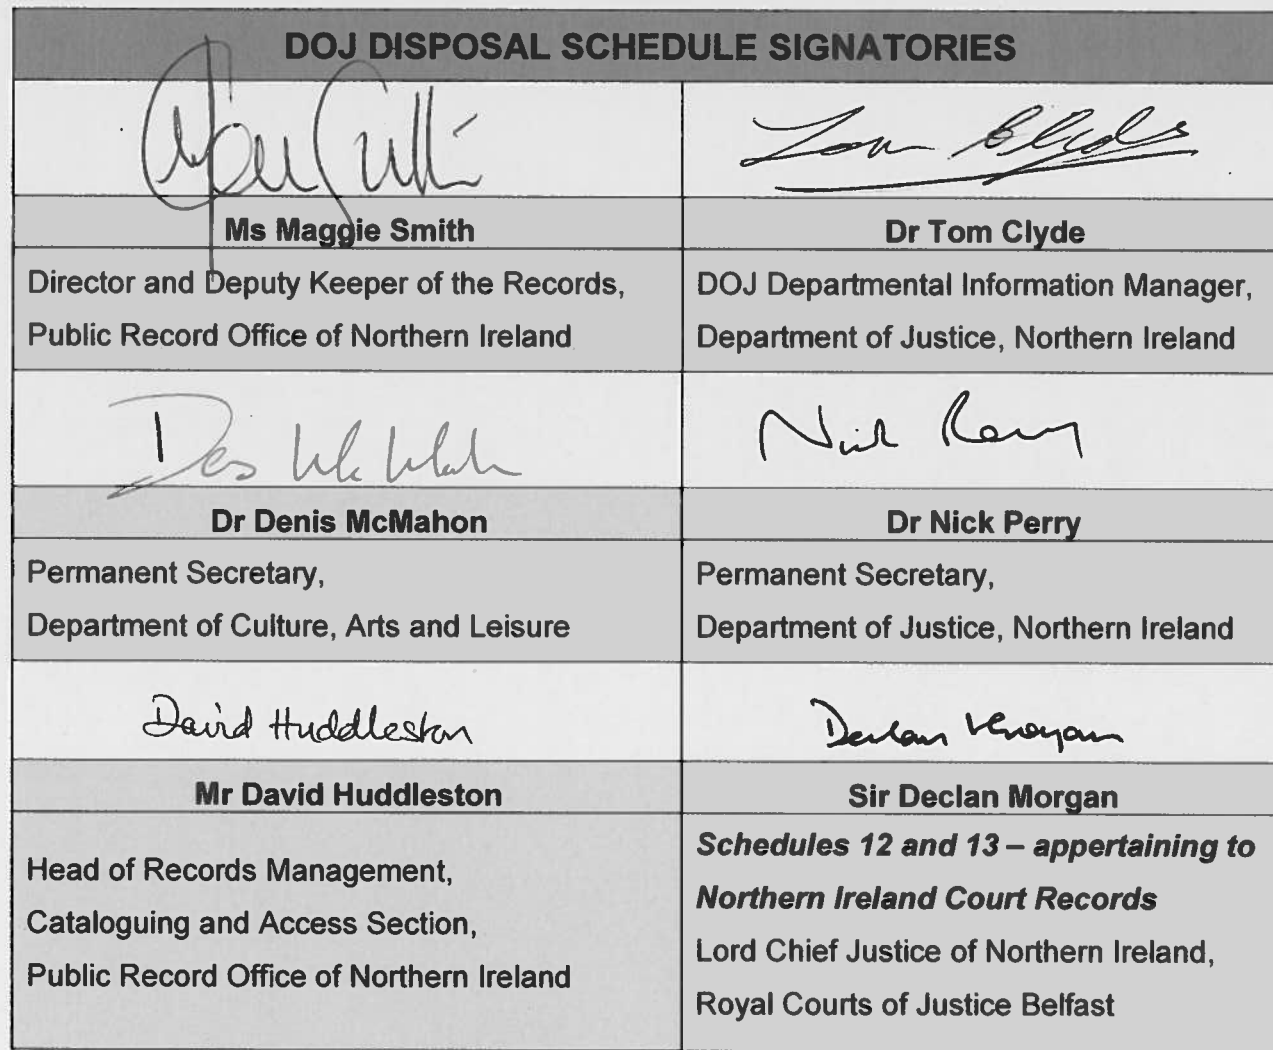 DOJ DISPOSAL SCHEDULE SIGNATORIES
Tom Clyde
Ms Maggie Smith
Dr Tom Clyde
Director and Deputy Keeper of the Records,
Public Record Office of Northern Ireland
DOJ Departmental Information Manager,
Department of Justice, Northern Ireland
Nick Perry
Dr Denis McMahon
Dr Nick Perry
Permanent Secretary,
Department of Culture, Arts and Leisure
Permanent Secretary,
Department of Justice, Northern Ireland
David Huddleston
Declan Morgan
Mr David Huddleston
Sir Declan Morgan
Head of Records Management,
Cataloguing and Access Section,
Public Record Office of Northern Ireland
Schedules 12 and 13 – appertaining to
Northern Ireland Court Records
Lord Chief Justice of Northern Ireland,
Royal Courts of Justice Belfast